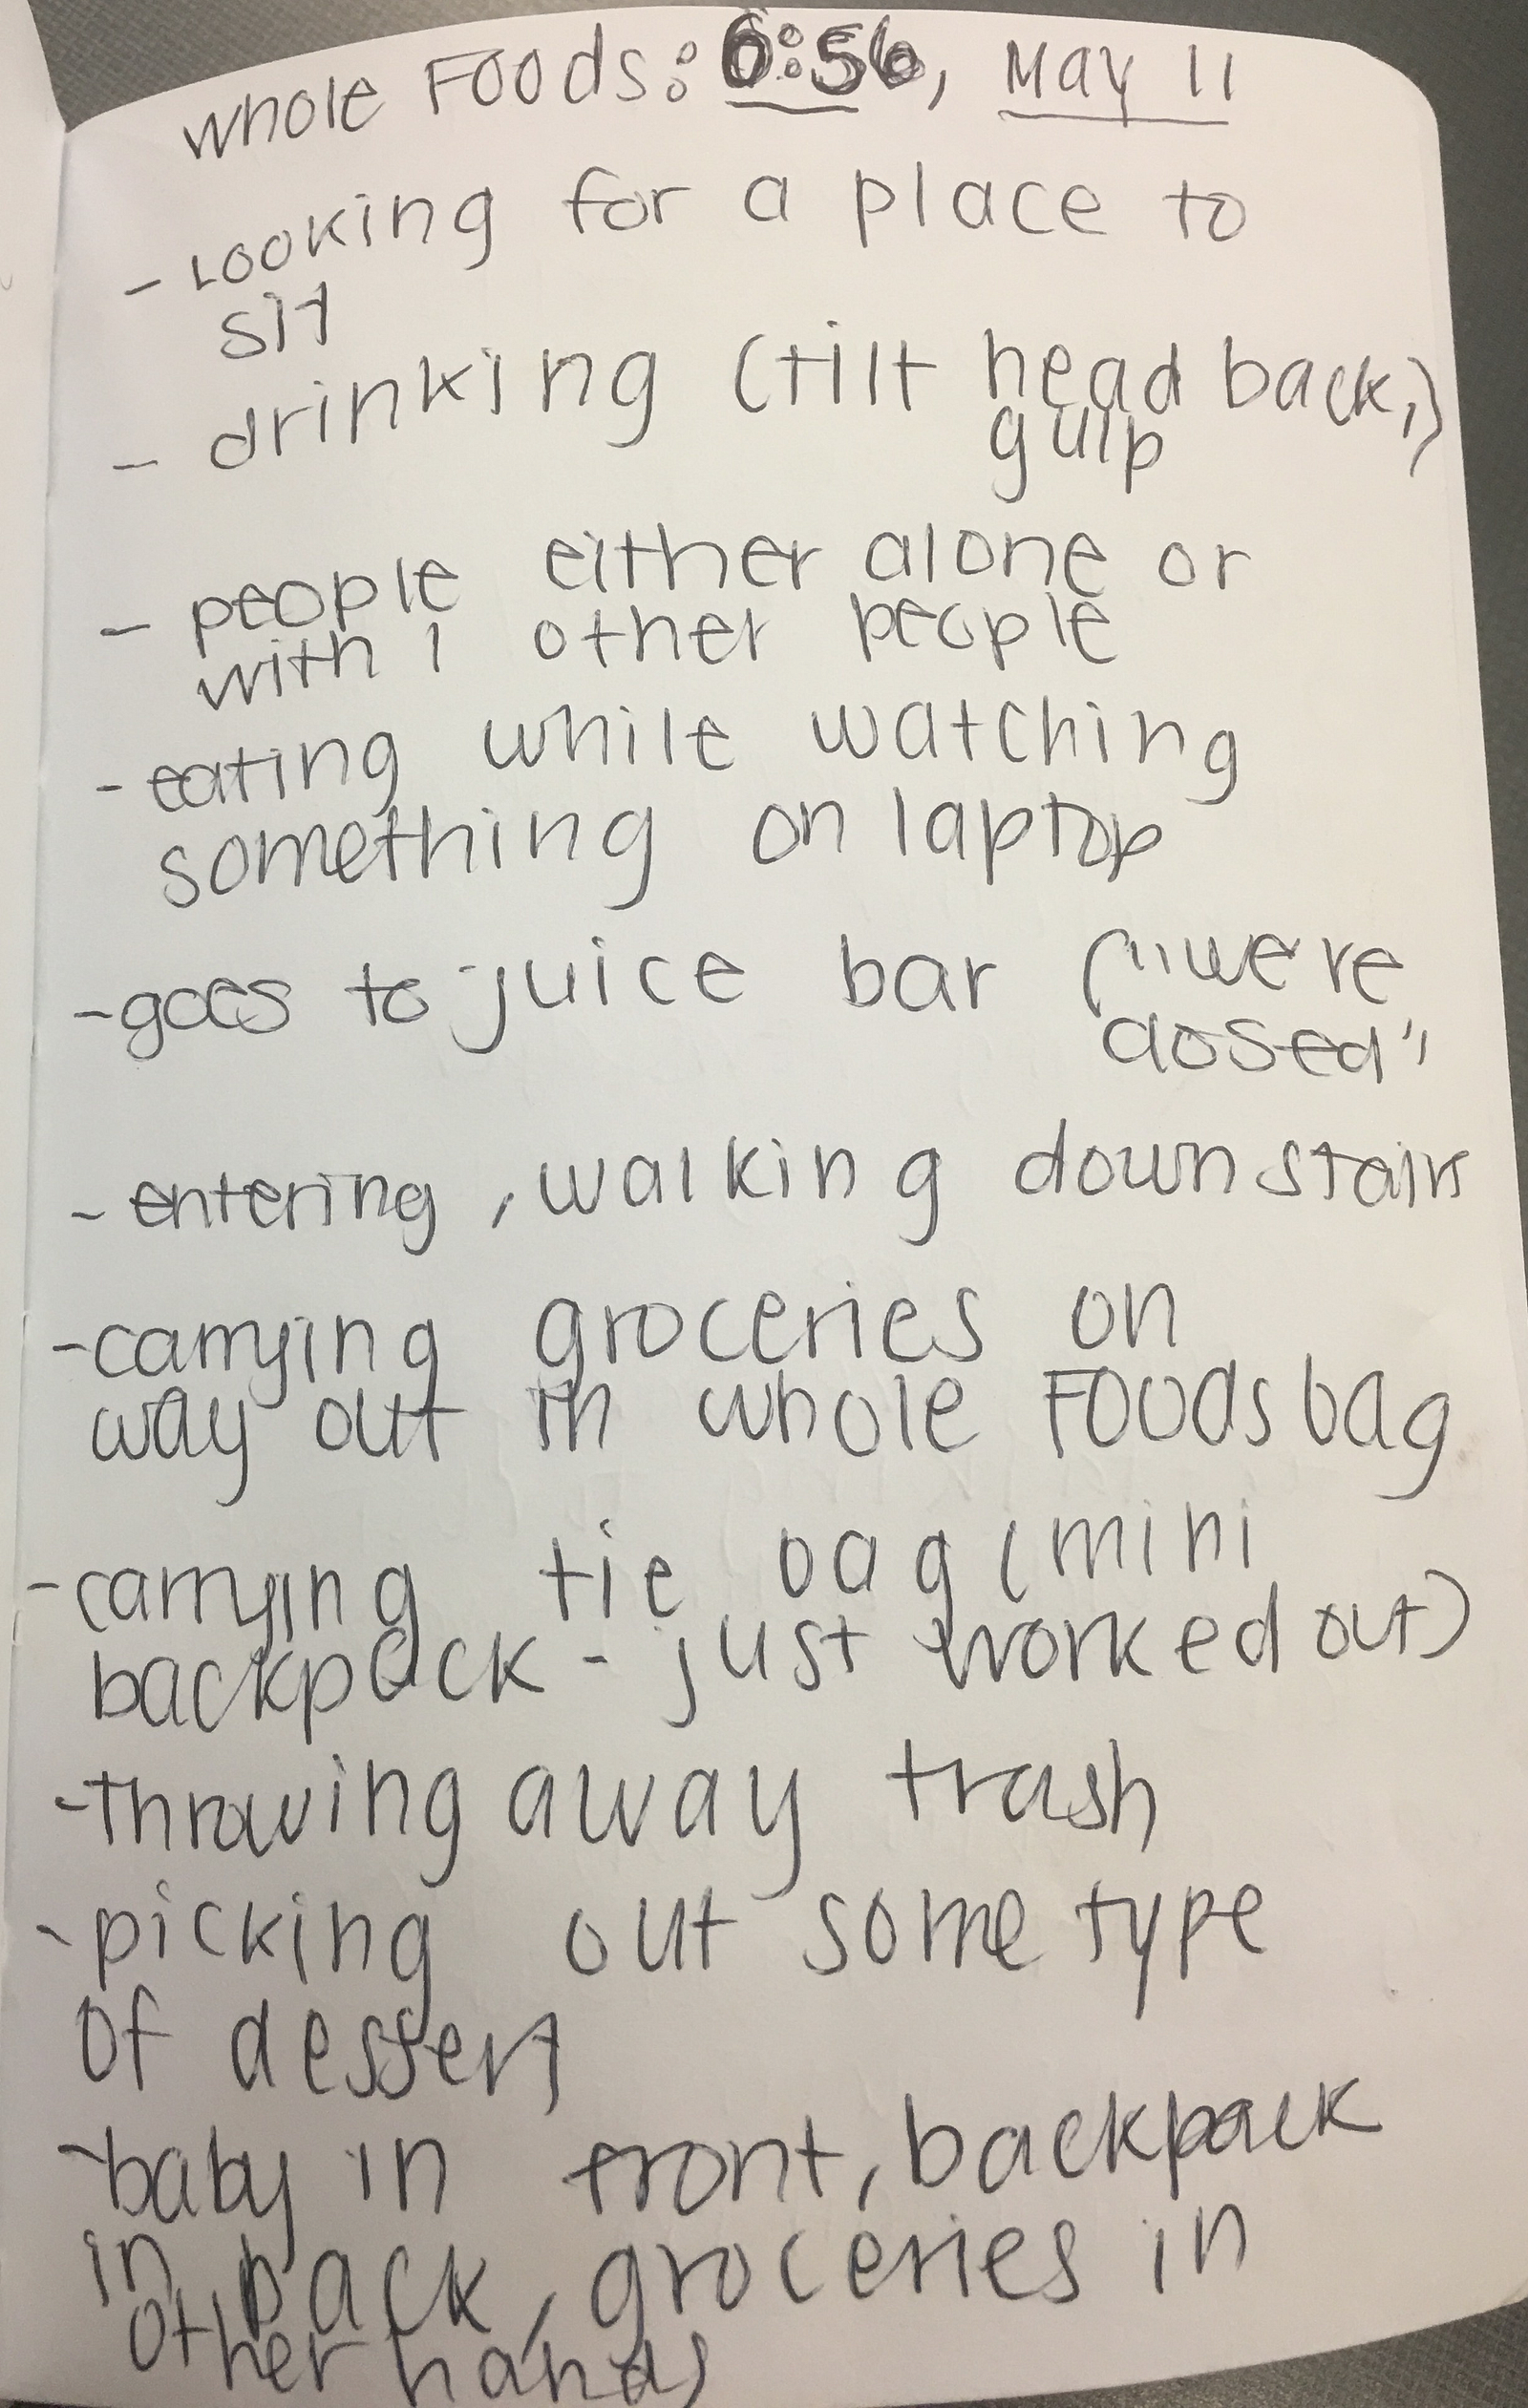 Whole Foods: 6:56, May 11
- Looking for a place to
sit
- drinking (tilt head back,)
gulp
- people either alone or
with 1 other people
- eating while watching
something on laptop
- goes to juice bar ("were
closed"
- entering, walking downstairs
- carrying groceries on
way out in whole Foods bag
- carrying tie bag (mini
backpack - just worked out)
- throwing away trash
- picking out some type
of dessert
- baby in front, backpack
in back, groceries in
other hands